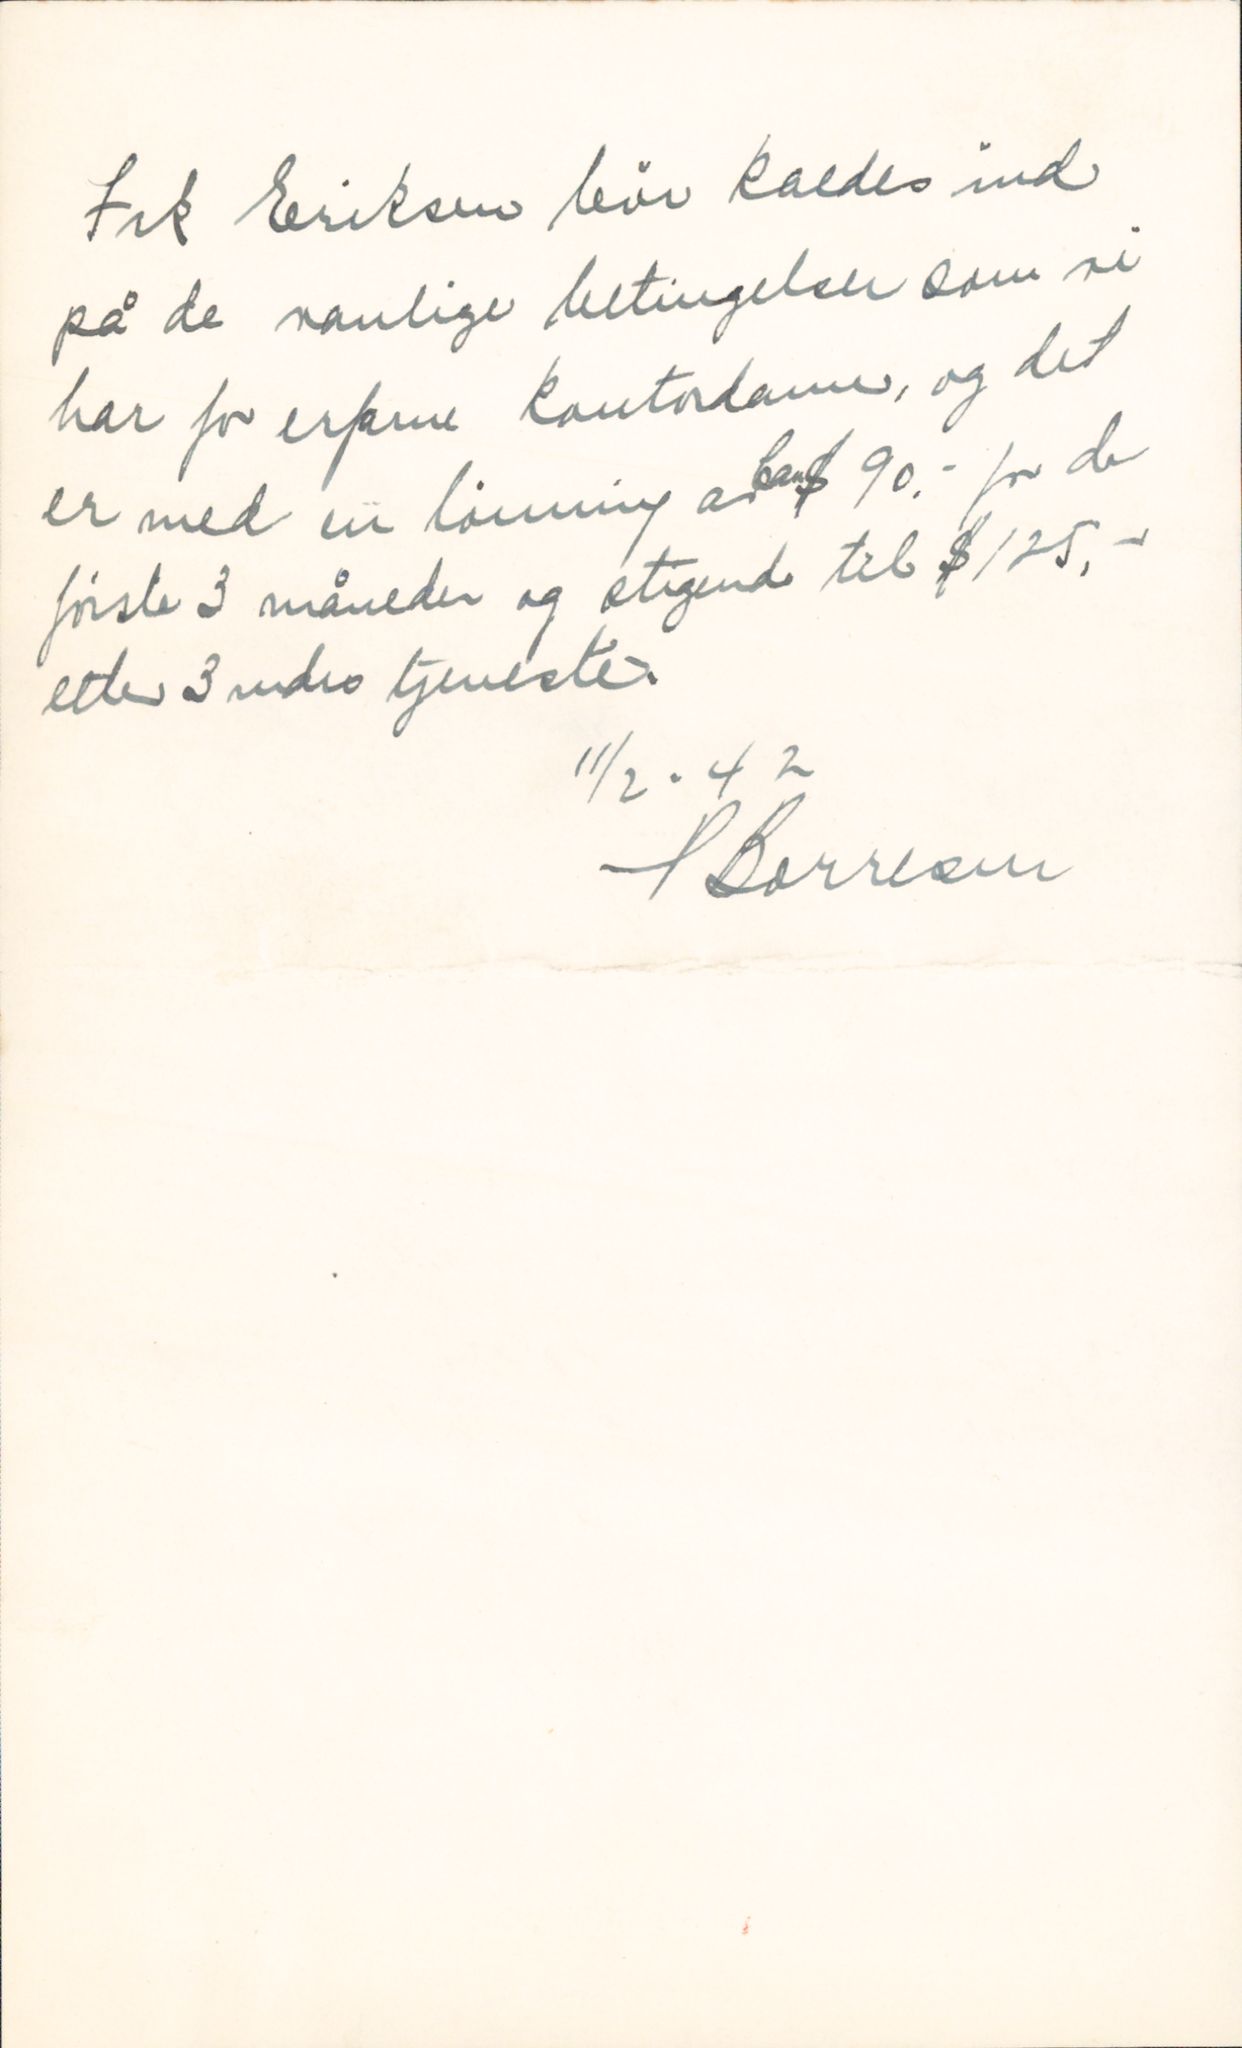 Frk Eriksen bör kaldes ind
på de vanlige betingelser som vi
har for erfarne kontordamer, og det
er med en lönning av Can $ 90.- for de
förste 3 måneder og stigende til $ 125,-
etter 3 mdrs tjeneste.
11/2. 42
Börresen